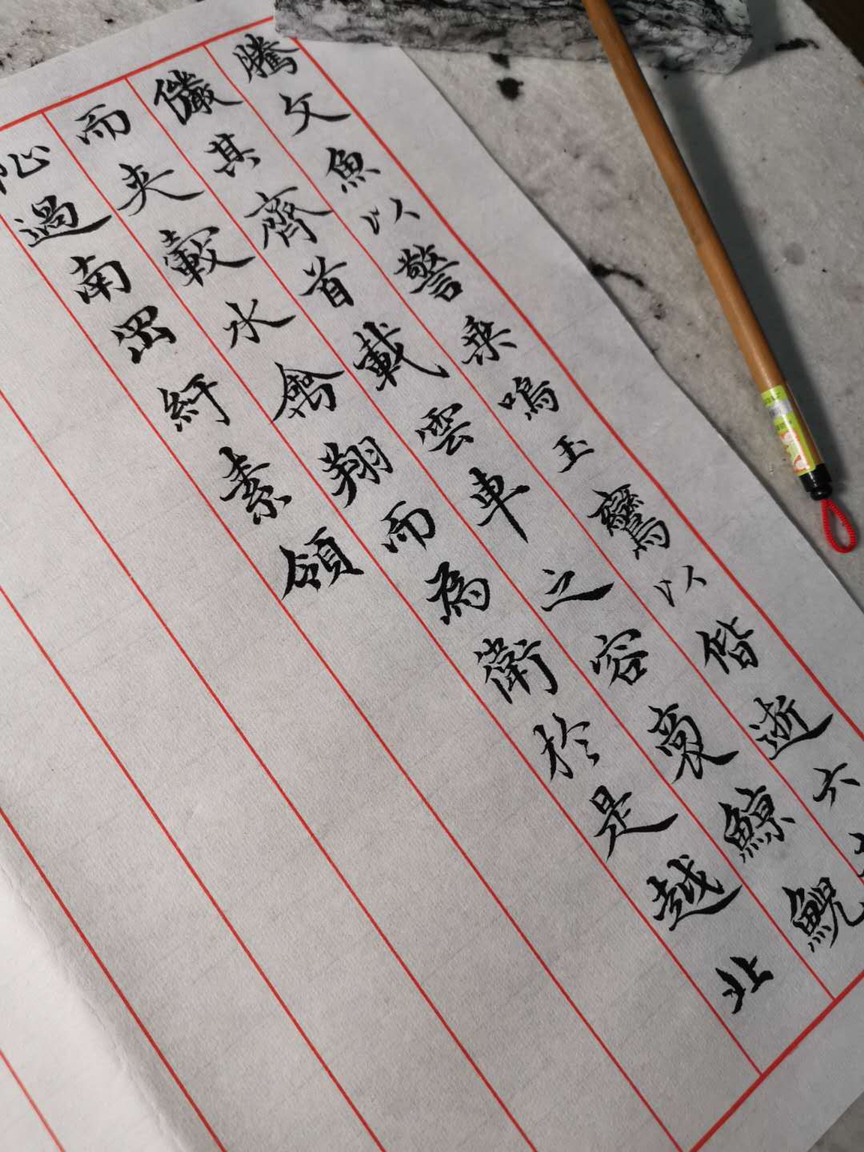 騰文魚以警乘鳴玉鸞以偕逝六
儼其齊首載雲車之容裔鯨鯢
而夾轂水禽翔而為衛於是越北
沚過南岡紆素領